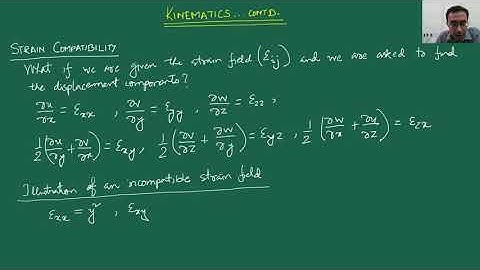 KINEMATICS.. CONTD.
STRAIN COMPATIBILITY
What if we are given the strain field (εij) and we are asked to find
the displacement components?
∂u/∂x = εxx , ∂v/∂y = εyy , ∂w/∂z = εzz ,
1/2 (∂u/∂y + ∂v/∂x) = εxy , 1/2 (∂v/∂z + ∂w/∂y) = εyz , 1/2 (∂w/∂x + ∂u/∂z) = εzx
Illustration of an incompatible strain field
εxx = y² , εxy